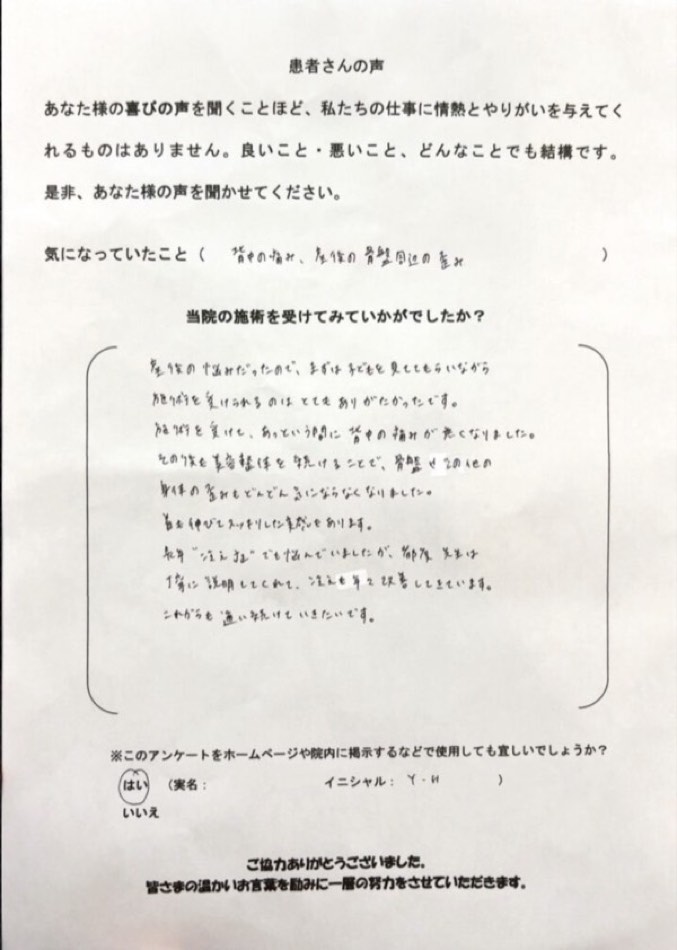 患者さんの声
あなた様の喜びの声を聞くことほど、私たちの仕事に情熱とやりがいを与えてく
れるものはありません。良いこと・悪いこと、どんなことでも結構です。
是非、あなた様の声を聞かせてください。
気になっていたこと( 背中の痛み、産後の骨盤周辺の歪み )
当院の施術を受けてみていかがでしたか?
産後の悩みだったので、まずは子どもを見ててもらいながら
施術を受けられるのはとてもありがたかったです。
施術を受けて、あっという間に背中の痛みが無くなりました。
その後も美容整体を続けることで、骨盤やその他の
身体の歪みもどんどん気にならなくなりました。
首も伸びてスッキリした実感もあります。
長年"冷え性"でも悩んでいましたが、都度 先生は
丁寧に説明もしてくれて、冷えも年々改善してきています。
これからも通い続けていきたいです。
※このアンケートをホームページや院内に掲示するなどで使用しても宜しいでしょうか?
はい (実名: イニシャル: Y・H )
いいえ
ご協力ありがとうございました。
皆さまの温かいお言葉を励みに一層の努力をさせていただきます。